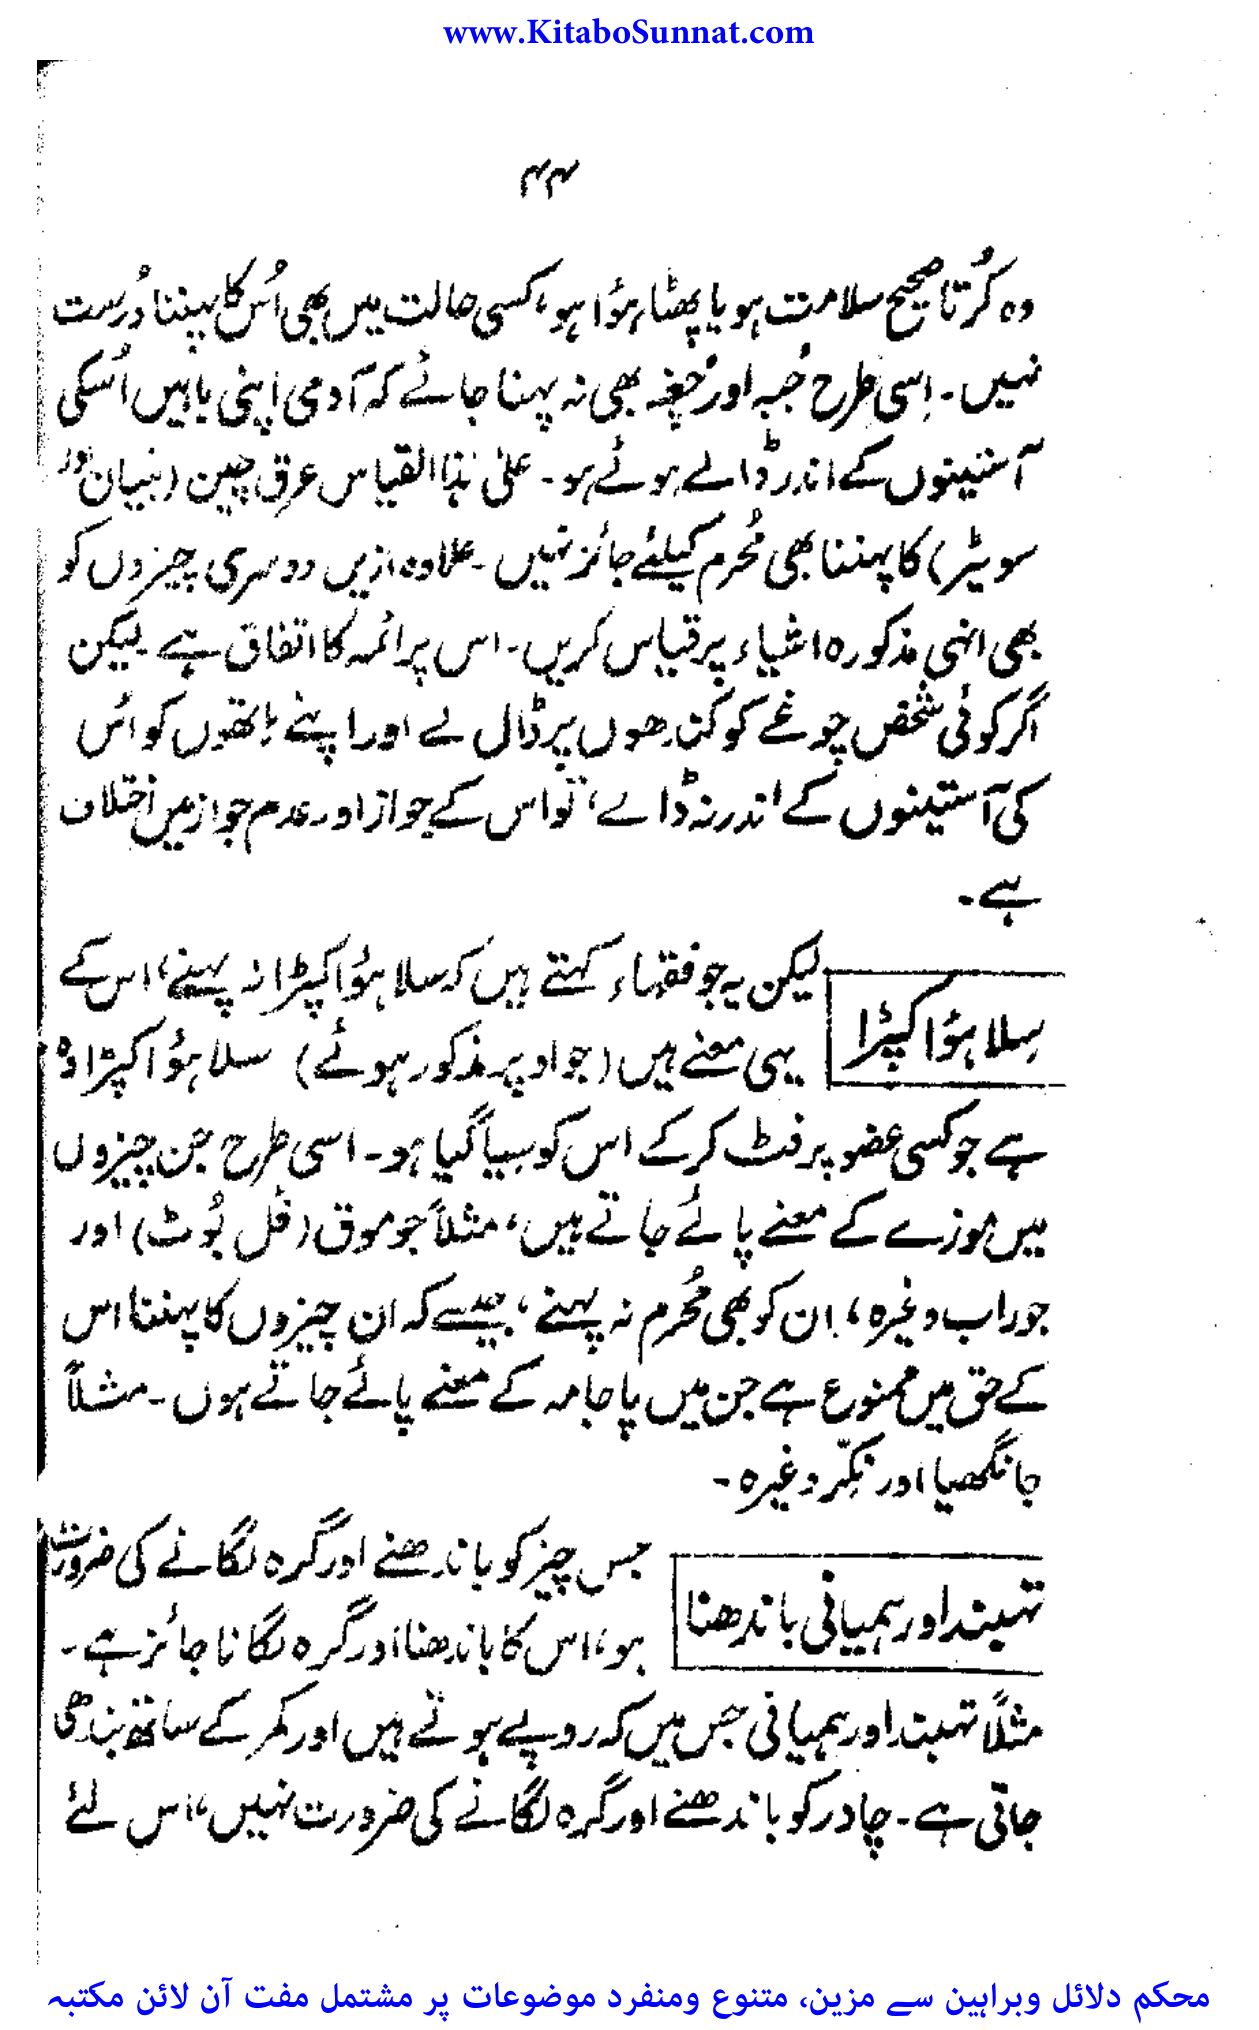 www.KitaboSunnat.com
۴۴
وہ کُرتا صحیح سلامت ہو یا پھٹا ہؤا ہو، کسی حالت میں بھی اُس کا پہننا دُرست
نہیں۔ اِسی طرح جُبہ اور چُغہ بھی نہ پہنا جائے کہ آدمی اپنی باہیں اُسکی
آستینوں کے اندر ڈالے ہوئے ہو۔ علیٰ ہذا القیاس عرق چین (بنیان اور
سویٹر) کا پہننا بھی مُحرم کیلئے جائز نہیں۔ علاوہ ازیں دوسری چیزوں کو
بھی انہی مذکورہ اشیاء پر قیاس کریں۔ اس پر ائمہ کا اتفاق ہے لیکن
اگر کوئی شخص چوغے کو کندھوں پر ڈال لے اور اپنے ہاتھوں کو اس
کی آستینوں کے اندر نہ ڈالے، تو اس کے جواز اور عدم جواز میں اختلاف
ہے۔
سِلا ہؤا کپڑا
لیکن یہ جو فقہاء کہتے ہیں کہ سلا ہؤا کپڑا نہ پہنے، اس کے
یہی معنے ہیں (جو اوپر مذکور ہوئے) سلا ہؤا کپڑا وہ
ہے جو کسی عضو پر فٹ کر کے اس کو سیا گیا ہو۔ اسی طرح جن چیزوں
میں موزے کے معنے پائے جاتے ہیں، مثلاً جو موق (فل بُوٹ) اور
جوراب وغیرہ، ان کو بھی مُحرم نہ پہنے، جیسے کہ ان چیزوں کا پہننا اس
کے حق میں ممنوع ہے جن میں پاجامہ کے معنے پائے جاتے ہوں۔ مثلاً
جانگھیا اور نکّر وغیرہ۔
تہبند اور ہمیانی باندھنا
جس چیز کو باندھنے اور گرہ لگانے کی ضرورت
ہو، اس کا باندھنا اور گرہ لگانا جائز ہے۔
مثلاً تہبند اور ہمیانی جس میں کہ روپے ہوتے ہیں اور کمر کے ساتھ بندھی
جاتی ہے۔ چادر کو باندھنے اور گرہ لگانے کی ضرورت نہیں، اس لئے
محکم دلائل وبراہین سے مزین، متنوع ومنفرد موضوعات پر مشتمل مفت آن لائن مکتبہ